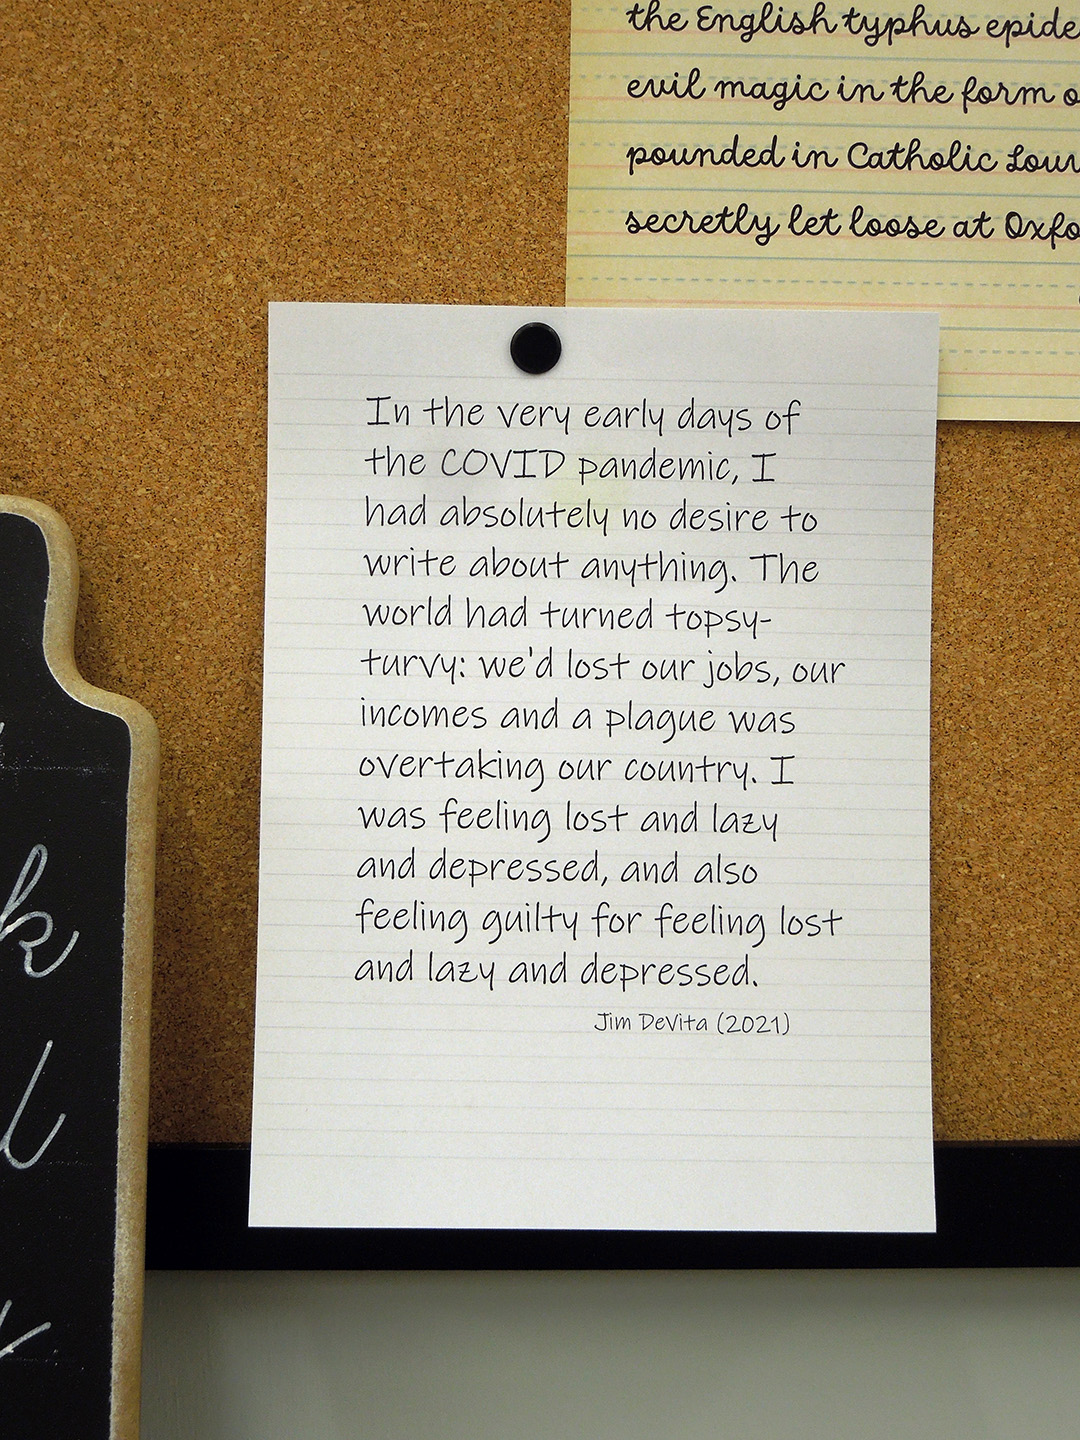 the English typhus
evil magic in the form
pounded in Catholic
secretly let loose at
In the very early days of
the COVID pandemic, I
had absolutely no desire to
write about anything. The
world had turned topsy-
turvy: we'd lost our jobs, our
incomes and a plague was
overtaking our country. I
was feeling lost and lazy
and depressed, and also
feeling guilty for feeling lost
and lazy and depressed.
Jim DeVita (2021)
k
l